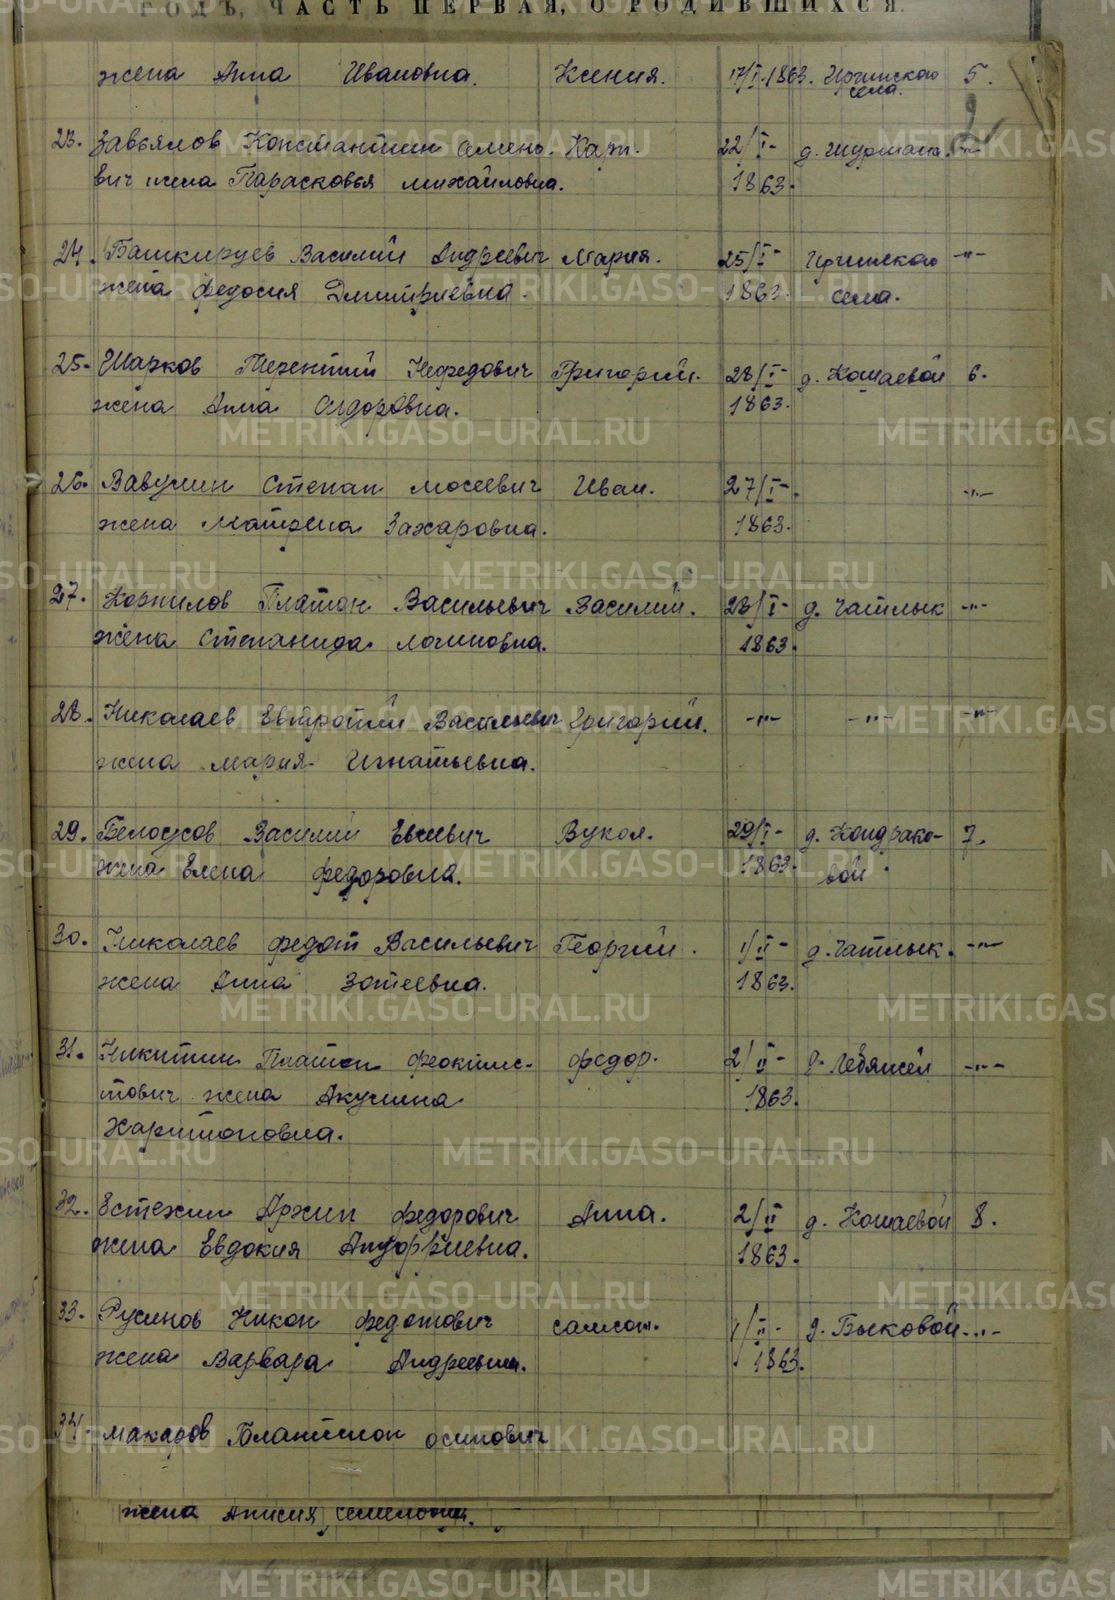 ГОДЪ, ЧАСТЬ ПЕРВАЯ, О РОДИВШИХСЯ.
жена Анна Ивановна. Ксения. 17/I-1863. Иргинское села. 5.
23. Завьялов Константин семено- Харп. 22/I- д. -"-
вич жена Парасковья михайловна. 1863.
24. Башкирцев Василий Андреевич Мария. 25/I- Иргинское -"-
жена федосия Дмитриевна. 1863. села.
25. Шарков Терентий Нефедович Григорий. 28/I- д. Кошаевой 6.
жена Анна Сидоровна. 1863.
26. Вавулин Степан мосеевич Иван. 27/I-. -"-
жена Матрена Захаровна. 1863.
27. Корнилов Платон Васильевич Василий. 28/I- д. Чатлык -"-
жена Степанида логиновна. 1863.
28. Николаев Евтропий Васильевич Григорий. -"- -"- -"-
жена мария Игнатьевна.
29. Белоусов Василий Евсевич Вукол. 29/I- д. Кондрако- 7.
жена Елена федоровна. 1863. вой.
30. Николаев федот Васильевич Георгий. 1/II- д. Чатлык. -"-
жена Анна Зотеевна. 1863.
31. Никитин Платон феоктис- федор. 2/II- д. Лебяжей -"-
тович жена Акулина 1863.
Харитоновна.
32. Естехин Архип федорович Анна. 2/II д. Кошаевой 8.
жена Евдокия 1863.
33. Русинов Никон федотович самсон. 1/II-. д. Быковой -"-
жена Варвара Андреевна. 1863.
34. макаров осипович
жена Анисия семеловна.
METRIKI.GASO-URAL.RU